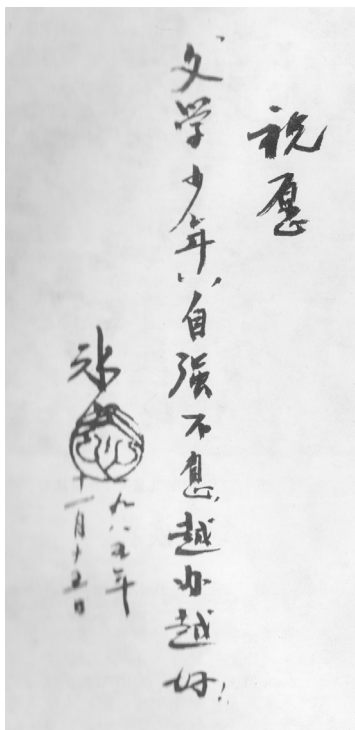 祝愿
“文学少年”自强不息,越办越好!
冰心
一九八五年
十一月十五日